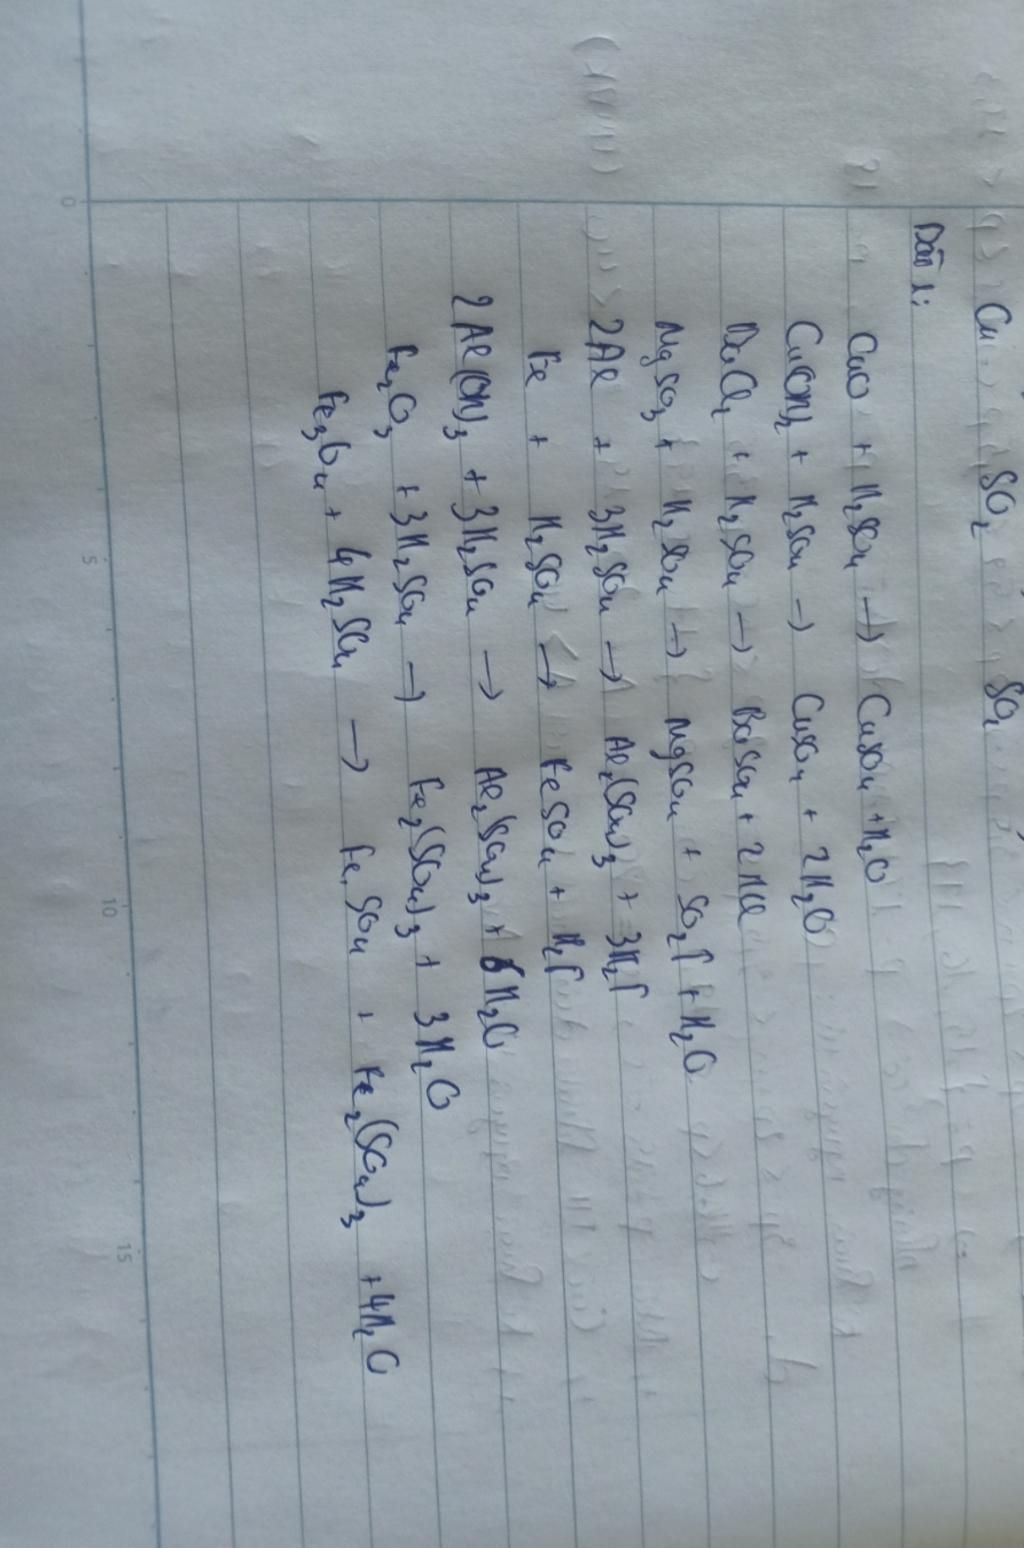 Cu SO₂ SO₄
Dãn 1:
CuO + H₂SO₄ → CuSO₄ + H₂O
Cu(OH)₂ + H₂SO₄ → CuSO₄ + 2H₂O
BaCl₂ + H₂SO₄ → BaSO₄ + 2HCl
MgSO₃ + H₂SO₄ → MgSO₄ + SO₂↑ + H₂O
2Al + 3H₂SO₄ → Al₂(SO₄)₃ + 3H₂↑
Fe + H₂SO₄ → FeSO₄ + H₂↑
2Al(OH)₃ + 3H₂SO₄ → Al₂(SO₄)₃ + 6H₂O
Fe₂O₃ + 3H₂SO₄ → Fe₂(SO₄)₃ + 3H₂O
Fe₃O₄ + 4H₂SO₄ → FeSO₄ + Fe₂(SO₄)₃ + 4H₂O
0 5 10 15